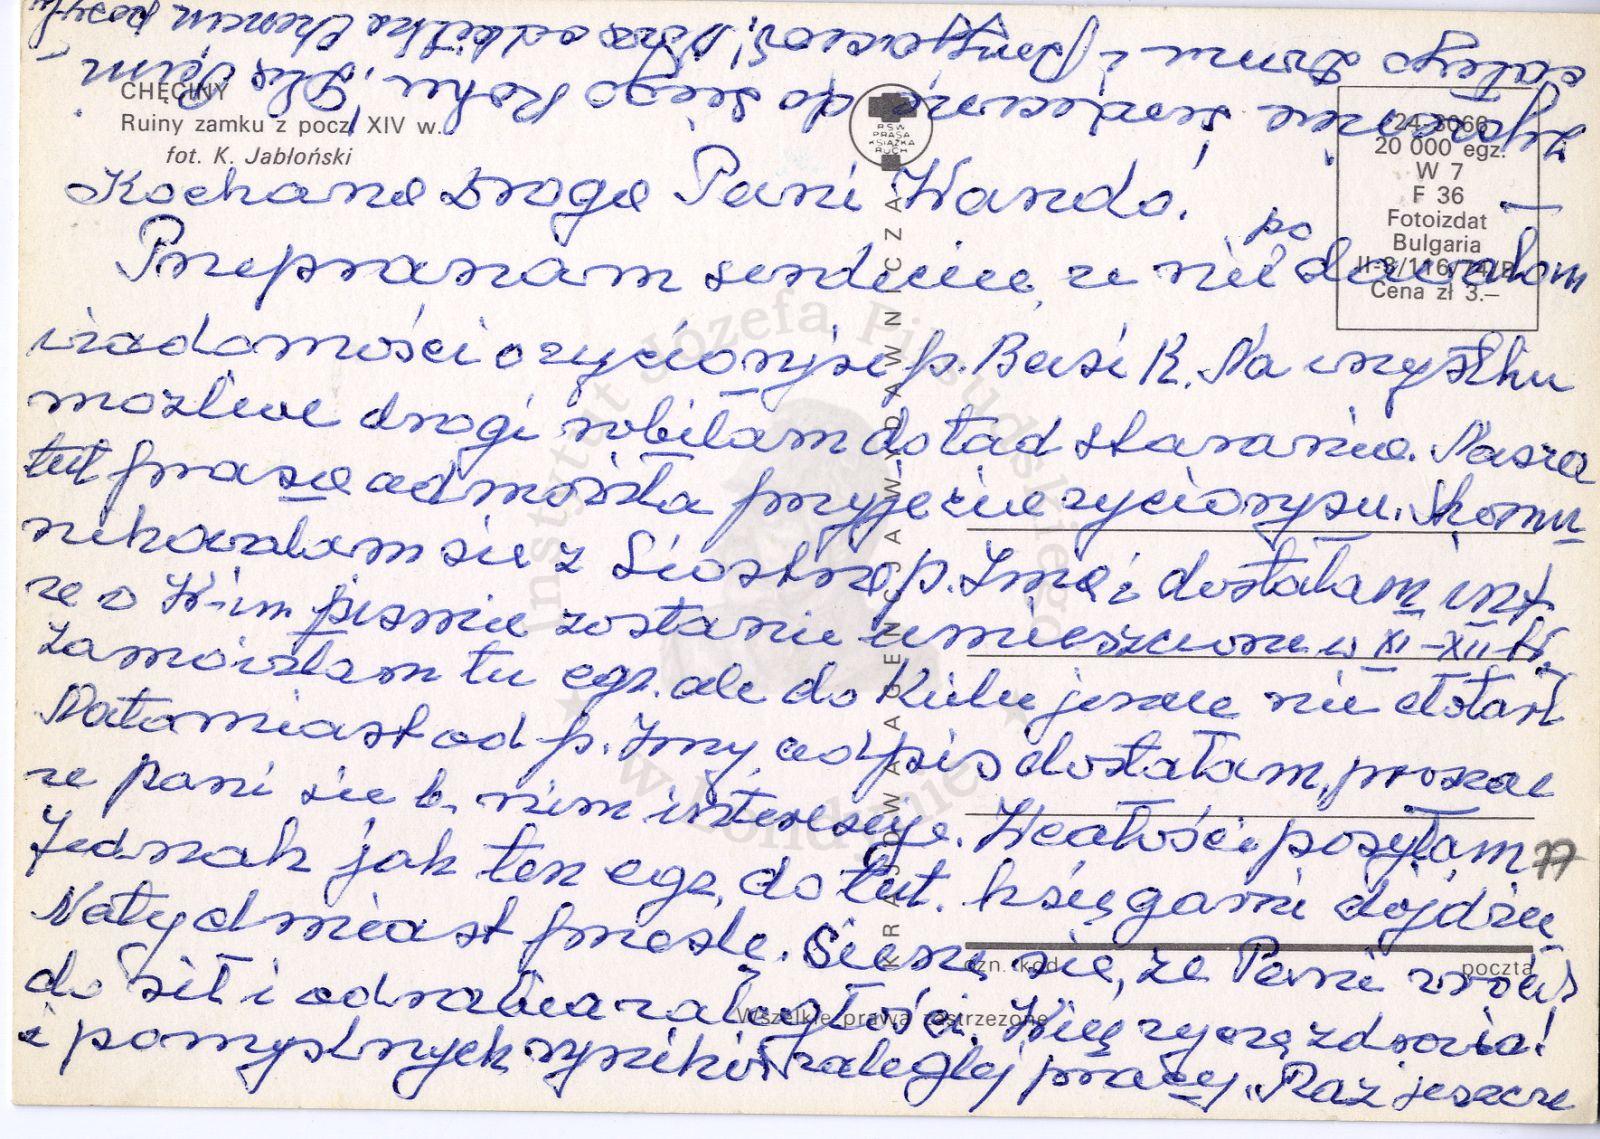 CHĘCINY
Ruiny zamku z pocz. XIV w.
fot. K. Jabłoński
RSW
PRASA
KSIĄŻKA
RUCH
24-3066
20 000 egz.
W 7
F 36
Fotoizdat
Bulgaria
II-8/116/74/B
Cena zł 3.—
Kochana Droga Pani Wando!
Przepraszam serdecznie, że nie podawałam
wiadomości o życiorysie p. Basi K. Na wszystkie
możliwe drogi robiłam dotąd starania. Nasza
tut prasa odmówiła przyjęcie życiorysu. Skomu
nikowałam się z Siostrą p. Iną i dostałam inf.
że o W-im piśmie zostanie umieszczone w XI-XII br.
Zamówiłam tu egz. ale do Kielc jeszcze nie dotarł
Natomiast od p. Iny odpis dostałam, proszę
że pani się b. nim interesuje. W całości posyłam
Jednak jak ten egz. do tut. księgarni dojdzie
Natychmiast prześlę. Cieszę się, że Pani wróci
do sił i odrabia zaległości. Więc życzę zdrowia!
i pomyślnych wyników zaległej pracy. Raz jeszcze
życzenia serdeczne do Siego Roku, Dla Pani
całego Domu i Przyjaciół!
KRAJOWA AGENCJA WYDAWNICZA
Instytut Józefa Piłsudskiego
w Londynie
77
ozn. kod.
poczta
Wszelkie prawa zastrzeżone